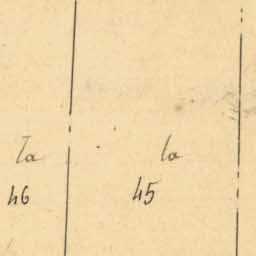 la la
46 45